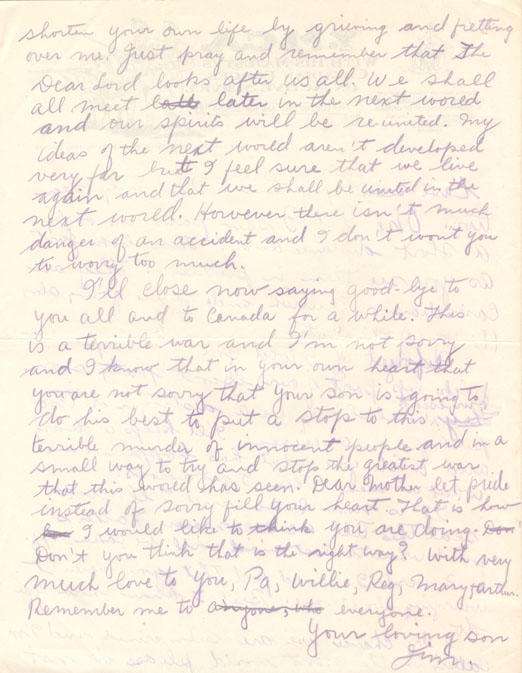 shorten your own life by grieving and fretting
over me. Just pray and remember that The
Dear Lord looks after us all. We shall
all meet later in the next world
and our spirits will be re-united. My
ideas of the next world aren't developed
very far but I feel sure that we live
again and that we shall be united in the
next world. However there isn't much
danger of an accident and I don't won't you
to worry too much.
I'll close now saying good-bye to
you all and to Canada for a while. This
is a terrible war and I'm not sorry
and I know that in your own heart that
you are not sorry that your son is going to
do his best to put a stop to this
terrible murder of innocent people and in a
small way to try and stop the greatest war
that this world has seen. Dear Mother let pride
instead of sorry fill your heart. That is how
I would like to think you are doing. Don't
Don't you think that is the right way? With very
much love to You, Pa, Willie, Reg, Mary & Arthur.
Remember me to anyone, who everyone.
Your loving son
Jim.